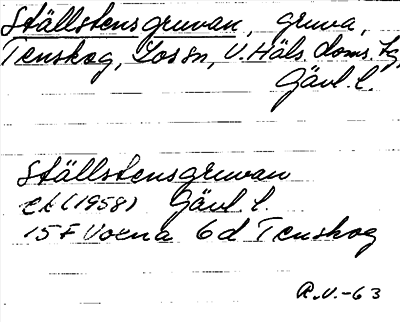 Ställstensgruvan, gruva,
Tenskog, Loss sn, V. Häls. doms. tg,
Gävl. l.
Ställstensgruvan
ek (1958) Gävl. l.
15F Voxna 6d Tenskog
R.V.-63